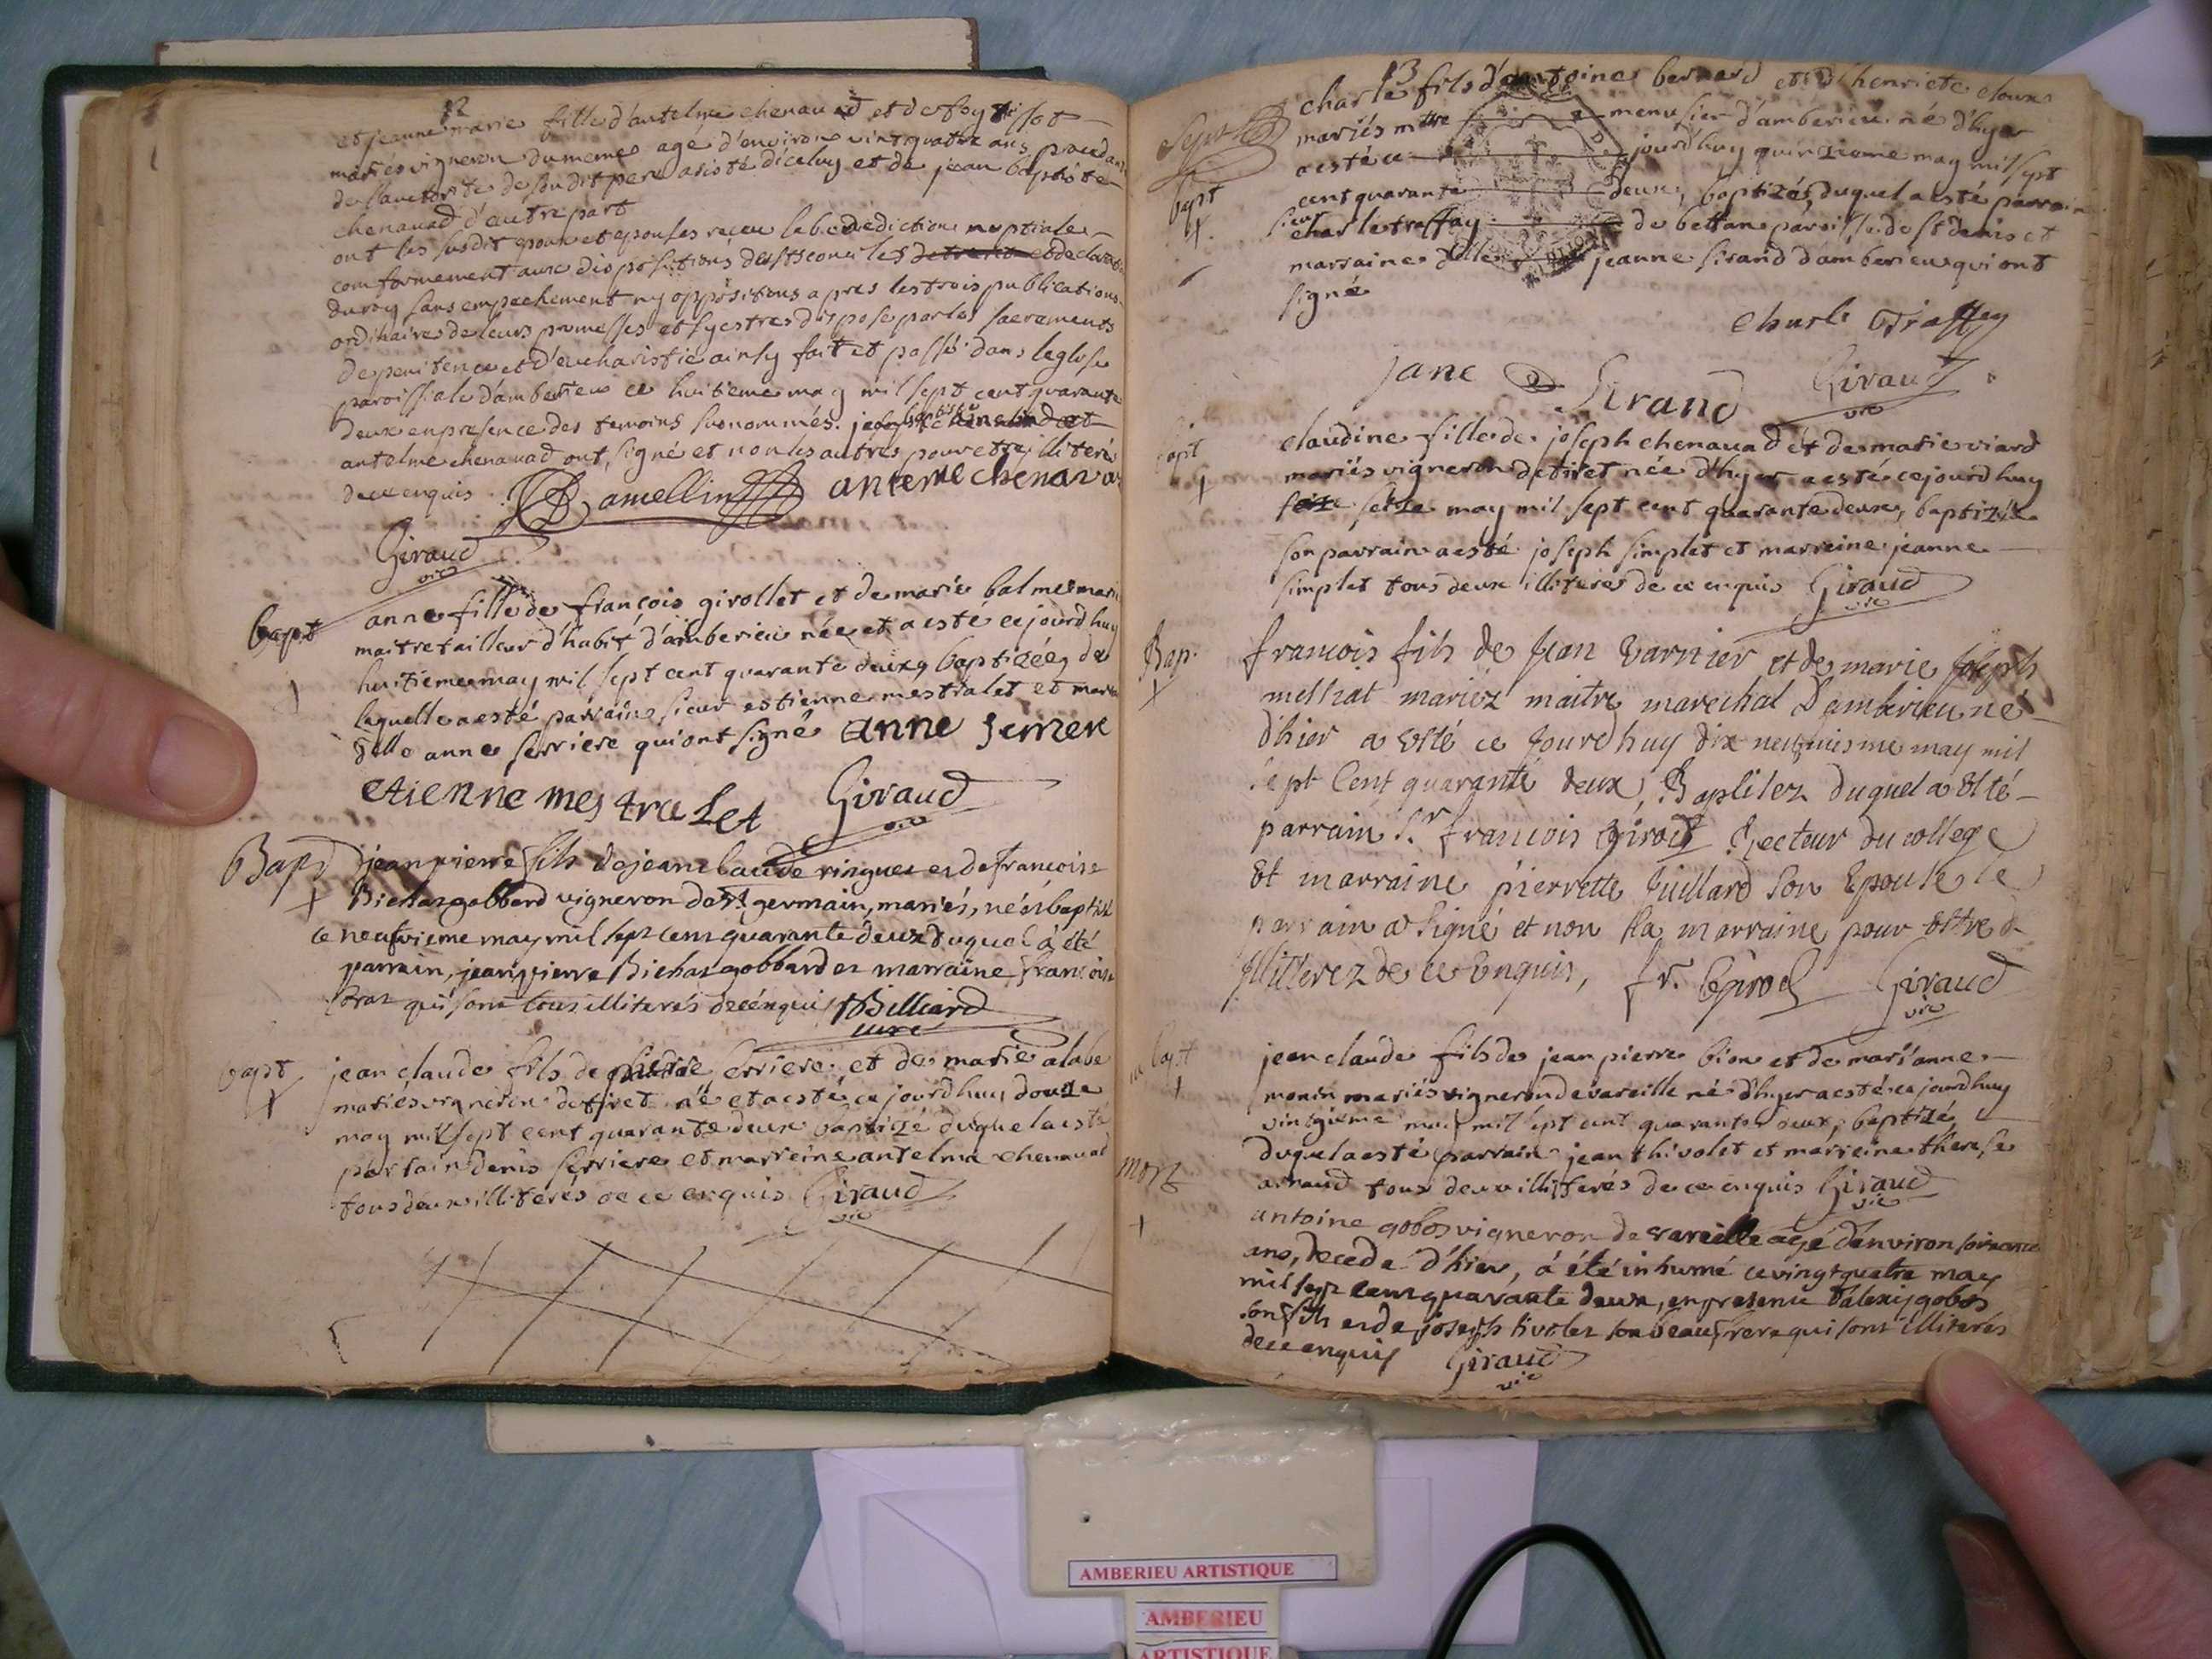 12
et jeanne marie fille d'antelme chenavad et de foy tissot
mariés vigneron du meme agé d'environ vint quatre ans procedant
de l'auctorite de son dit pere asisté d'iceluy et de jean baptiste
chenavad d'autre part
ont les susdit epoux et epouses receu la benediction nuptiale
conformement aux dispositions des sts conciles et declarations
du roy sans empechement ny oppositions apres les trois publications
ordinaires de leurs promesses et s'y estres disposé par les sacrements
de penitence et d'eucharistie ainsy fait et passé dans leglise
paroissiale d'amberieu ce huitieme may mil sept cent quarante
deux en presence des temoins susnommés.
antelme chenavad ont signé et non les autres pour etre illiteré
de ce enquis. Bamellin anteme chenava
Giraud
vic
bapt
anne fille de françois girollet et de marie balme mariés
maitre tailleur d'habit d'amberieu née et a esté cejourd huy
huitieme may mil sept cent quarante deux baptizée, de
laquelle a esté parrain sieur estienne mestralet et marraine
dlle anne serriere qui ont signé anne semere
etienne mestralet Giraud
vic
Bapt jean pierre fils de jean claude ringuet et de francoise
Bichat gobbard vigneron de st germain, mariés, né et baptisé
ce neufvieme may mil sept cent quarante deux duquel à été
parrain, jean pierre Bichat gobbard et marraine francoise
qui sont tous illiterés de ce enquis Billiard
curé
bapt jean claude fils de pierre serriere et de marie alabe
mariés vigneron de tiret né et a esté ce jourd huy douze
may mil sept cent quarante deux baptizé duquel a esté
parrain denis serriere et marreine antelma chenavad
tous deux illiterés de ce enquis Giraud
vic
13
charle fils d'antoine bernard et d'henriete
mariés mtre menusier d'amberieu né d'hyer
a esté ce jourd'huy quinzieme may mil sept
bapt
cent quarante deux, baptizé, duquel a esté parrain
sieur charle traffay de bettan paroisse de st denis et
marraine dlle jeanne sirand d'amberieu qui ont
signé
charle Traffey
jane Sirand Giraud
vic
bapt
claudine fille de joseph chenavad et de marie viard
mariés vigneron de tiret née d'hyer a esté cejourd huy
seize may mil sept cent quarante deux, baptizée
son parrain a esté joseph simplet et marreine jeanne
simplet tous deux illiterés de ce enquis Giraud
vic
Bap. francois fils de Jean Varnier et de marie Joseph
melliat mariez maitre marechal d'amberieu né
d'hier a esté ce jourd huy dix neufuiesme may mil
sept Cent quarante deux, Baptisez duquel a Esté
parrain Sr francois Girod Recteur du college
Et marraine pierrette Juillard son Epouse, le
parrain a signé et non la marraine pour estre
Jlliterez de ce Enquis, fr. Girod Giraud
vic
bapt
jean claude fils de jean pierre bion et de marianne
monin mariés vigneron de vareille né d'hyer a esté ce jourdhuy
vintgieme may mil sept cent quarante deux, baptizé,
duquel a esté parrain jean thivolet et marreine therese
arnaud tous deux illiterés de ce enquis Giraud
vic
mort
antoine gobos vigneron de vareille agé d'environ soixante
ans, decedé d'hier, à été inhumé ce vingt quatre may
mil sept cent quarante deux, en presence d'alexis gobos
son fils et de joseph tivolet son beau frere qui sont illiterés
de ce enquis Giraud
vic
AMBERIEU ARTISTIQUE
AMBERIEU
ARTISTIQUE